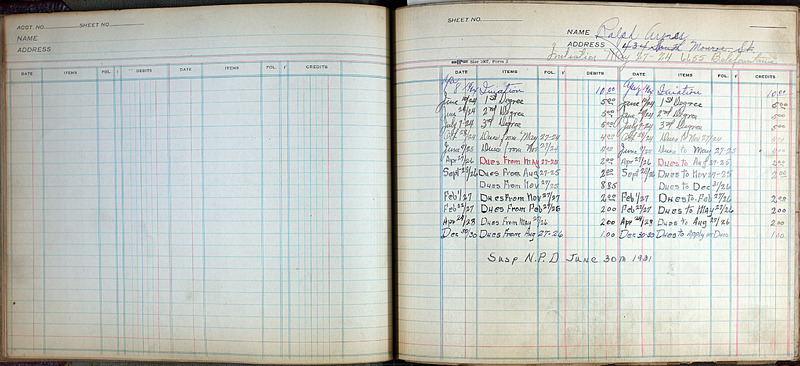 ACCT. NO. SHEET NO.
NAME
ADDRESS
DATE ITEMS FOL. ✓ DEBITS DATE ITEMS FOL. ✓ CREDITS
SHEET NO.
NAME Ralph
ADDRESS 434 South Monroe
Initiation May 27-24 6655
Size 1007, Form 2
DATE ITEMS FOL. ✓ DEBITS DATE ITEMS FOL. ✓ CREDITS
Initiation 10.00 Initiation 10.00
June 1st Degree 5.00 June 1st Degree 5.00
2nd Degree 5.00 2nd Degree 5.00
July 7-24 3rd Degree 5.00 July 3rd Degree 5.00
Dues from May 27-24 4.00 Dues to Nov 27/24
June Dues from Nov 27/24 June Dues to May 27-25
Apr 27/26 Dues From May 27-25 2.00 Apr 27/26 Dues to Aug 27-25 2.00
Sept 25/26 Dues From Aug 27-25 2.00 Sept 25/26 Dues to Nov 27-25 2.00
Dues From Nov 27/25 8.85 Dues to Dec
Feb 1/27 Dues From Nov 27/27 2.00 Feb 1/27 Dues to Feb 2.00
Feb 22/27 Dues From Feb 27/26 2.00 Feb 22/27 Dues to May 27/26 2.00
Apr 28/28 Dues From May 27/26 2.00 Apr 28/28 Dues to Aug 27/26 2.00
Dec 30/30 Dues From Aug 27-26 1.00 Dec 30-30 Dues to Apply on Dues 1.00
Susp N.P.D June 30th 1931